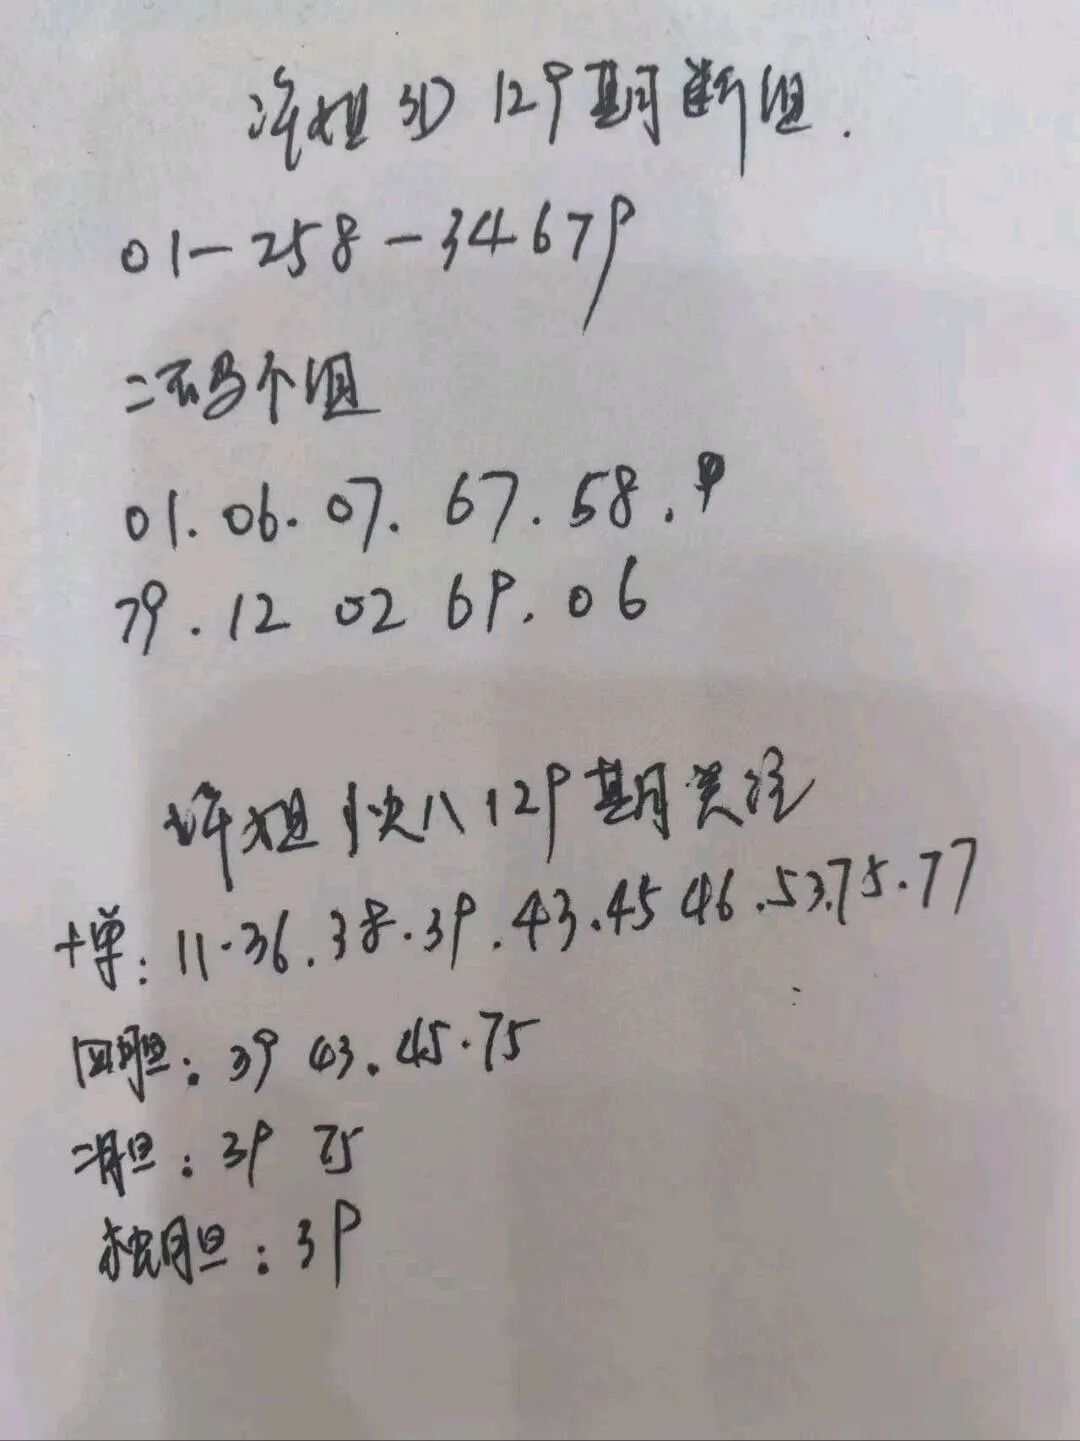 许姐3D 129期断组.
01-258-34679
二码个组
01.06.07. 67.58.
79.12 02 69.06
许姐快八129期关注
十单:11.36.38.39.43.45 46.53.75.77
四胆:39 43.45.75
二胆:39 75
独胆:39